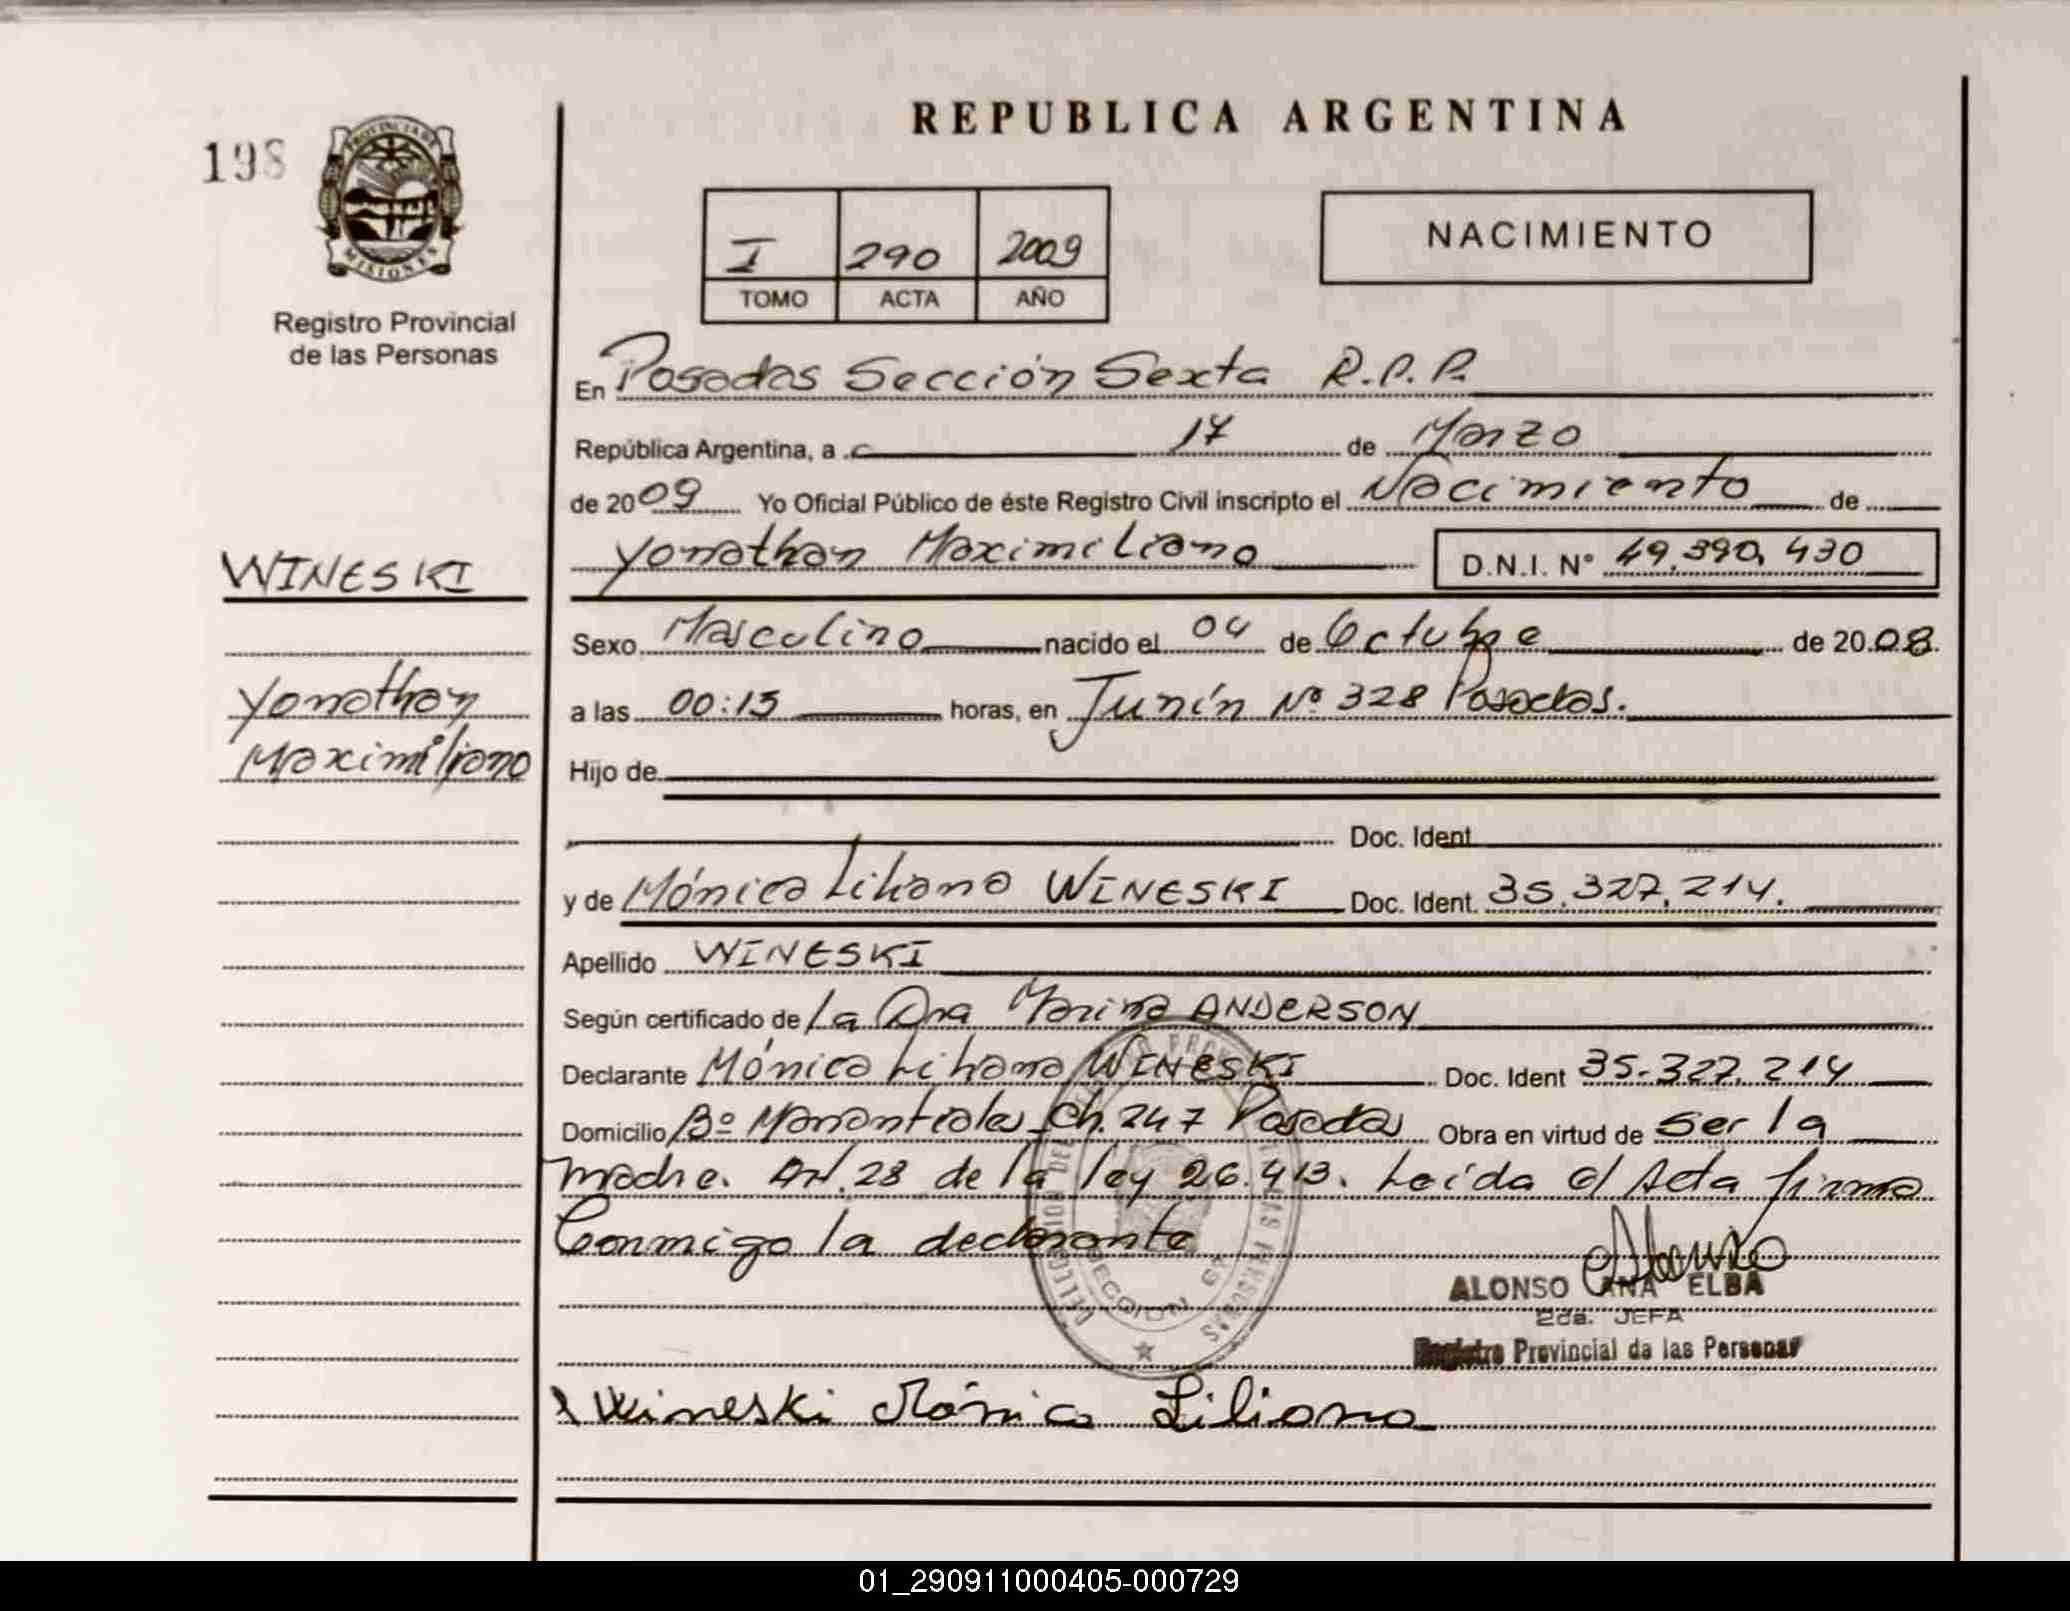 REPUBLICA ARGENTINA
198
PROVINCIA DE
MISIONES
Registro Provincial
de las Personas
I 290 2009
TOMO ACTA AÑO
NACIMIENTO
En Posadas Sección Sexta R.P.P.
República Argentina, a 17 de Marzo
de 2009 Yo Oficial Público de éste Registro Civil inscripto el Nacimiento de
Yonathan Maximiliano D.N.I. N° 49.390.430
WINESKI
Yonathan
Maximiliano
Sexo Masculino nacido el 04 de Octubre de 2008.
a las 00:15 horas, en Junín Nº 328 Posadas.
Hijo de
Doc. Ident
y de Mónica Liliana WINESKI Doc. Ident. 35.327.214.
Apellido WINESKI
Según certificado de la Dra Marina ANDERSON
Declarante Mónica Liliana WINESKI Doc. Ident 35.327.214
Domicilio Bº Manantiales Ch. 247 Posadas Obra en virtud de ser la
madre. Art. 28 de la ley 26.413. Leída el Acta firma
Conmigo la declarante
ALONSO ANA ELBA
2da. JEFA
Registro Provincial de las Personas
Wineski Mónica Liliana
01_290911000405-000729